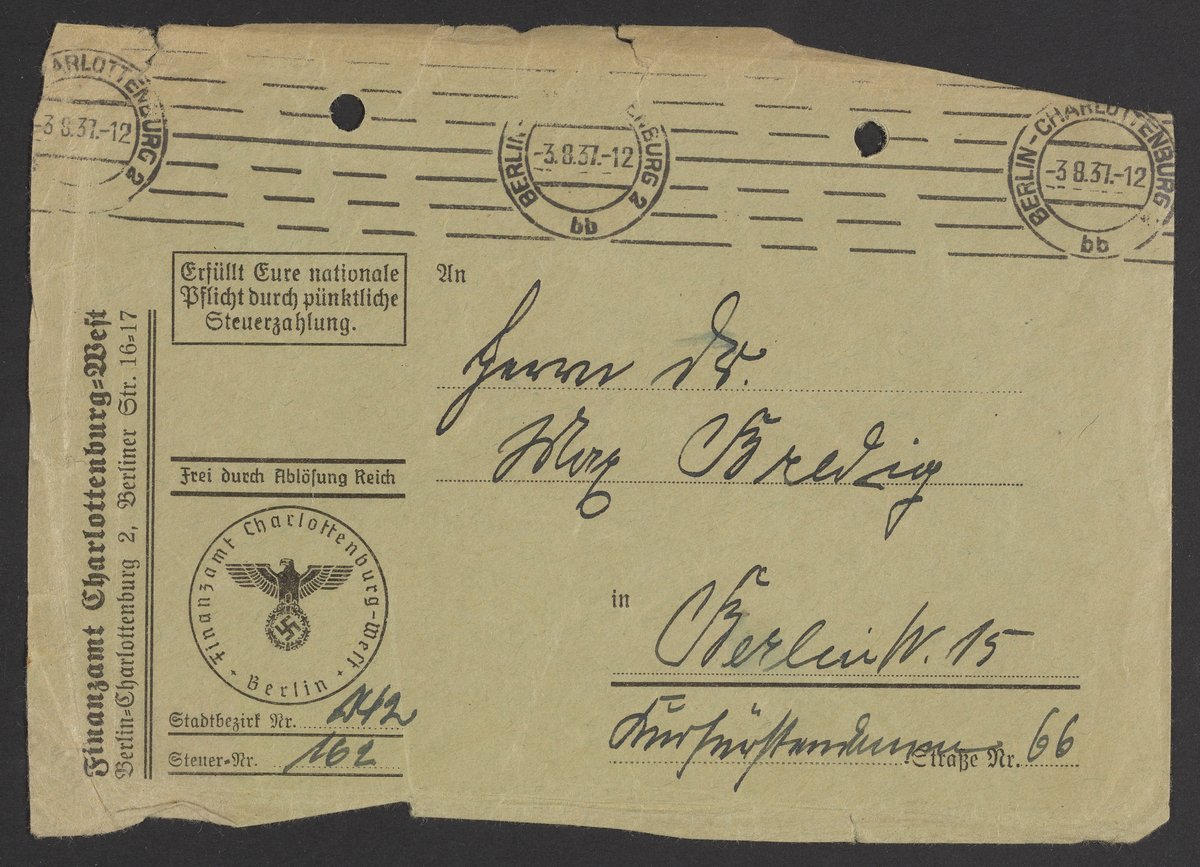 ARLOTTENBURG 2
-3.8.37.-12
BERLIN- ENBURG 2
-3.8.37.-12
bb
BERLIN-CHARLOTTENBURG
-3 8.37.-12
bb
Erfüllt Eure nationale
Pflicht durch pünktliche
Steuerzahlung.
An
Herrn Dr.
Max Bredig
in
Berlin W. 15
Kurfürstendamm Straße Nr. 66
Frei durch Ablösung Reich
Finanzamt Charlottenburg-West
Berlin
Stadtbezirk Nr.
Steuer-Nr. 162
Finanzamt Charlottenburg-West
Berlin-Charlottenburg 2, Berliner Str. 16-17